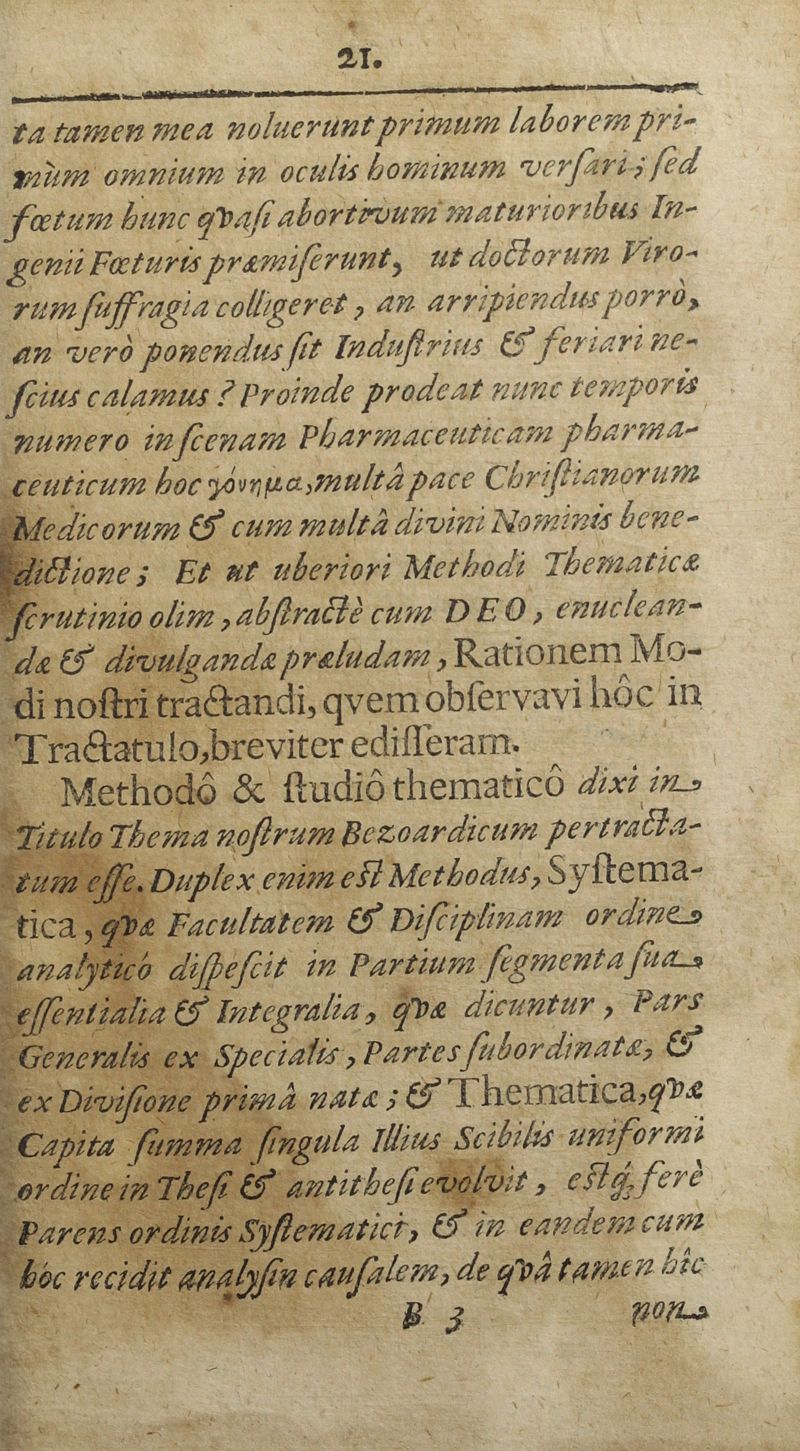 21.
ta tamen mea noluerunt primum laborem pri-
mùm omnium in oculis hominum verſari; ſed
fœtum hunc qvaſi abortivum maturioribus In-
genii Fœturis præmiſerunt, ut doctorum Viro-
rum ſuffragia colligeret, an arripiendus porrò,
an verò ponendus ſit Induſtrius & feriari ne-
ſcius calamus? Proinde prodeat nunc temporis
numero in ſcenam Pharmaceuticam pharma-
ceuticum hoc γόνημα, multâ pace Chriſtianorum
Medicorum & cum multâ divini Nominis bene-
dictione; Et ut uberiori Methodi Thematicæ
ſcrutinio olim, abſtractè cum DEO, enuclean-
dæ & divulgandæ præludam, Rationem Mo-
di noſtri tractandi, qvem obſervavi hôc in
Tractatulo, breviter ediſſeram.
Methodô & ſtudiô thematicô dixi in
Titulo Thema noſtrum Bezoardicum pertracta-
tum eſſe. Duplex enim eſt Methodus, Syſtema-
tica, qvæ Facultatem & Diſciplinam ordine
analyticô diſpeſcit in Partium ſegmenta ſua
eſſentialia & Integralia, qvæ dicuntur, Pars
Generalis ex Specialis, Partes ſubordinatæ, &
ex Diviſione primâ natæ; & Thematica, qvæ
Capita ſumma ſingula Illius Scibilis uniformi
ordine in Theſi & antitheſi evolvit, eſtq; ferè
Parens ordinis Syſtematici, & in eandem cum
hôc recidit analyſin cauſalem, de qvâ tamen hîc
B 3 non